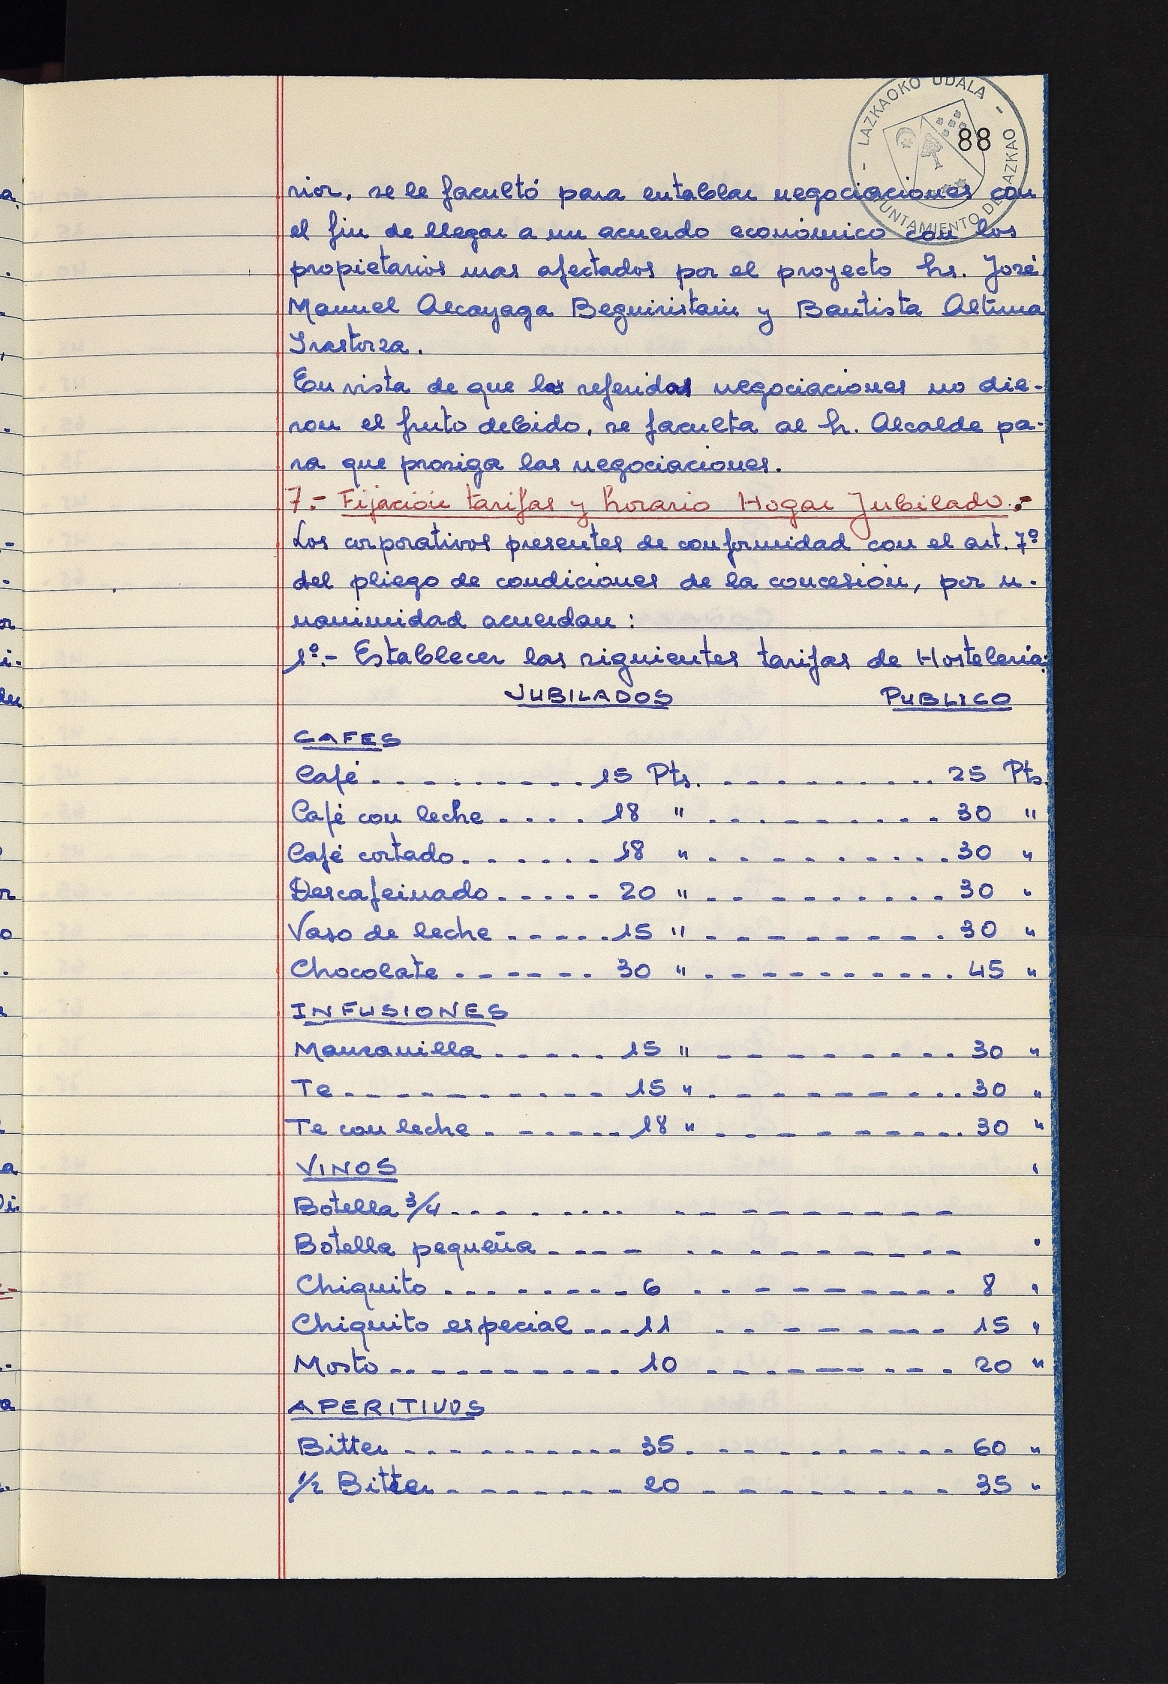 LAZKAOKO UDALA - AYUNTAMIENTO DE LAZKAO -
88
rior, se le facultó para entablar negociaciones con
el fin de llegar a un acuerdo económico con los
propietarios mas afectados por el proyecto Sr. José
Manuel Alcayaga Beguiristain y Bautista Altuna
Irastorza.
En vista de que las referidas negociaciones no die-
ron el fruto debido, se faculta al Sr. Alcalde pa-
ra que prosiga las negociaciones.
7.- Fijación tarifas y horario Hogar Jubilado.-
Los corporativos presentes de conformidad con el art. 7º
del pliego de condiciones de la concesión, por u-
nanimidad acuerdan:
1º.- Establecer las siguientes tarifas de Hostelería:
JUBILADOS PUBLICO
CAFES
Café . . . . . . . . . . 15 Pts. . . . . . . . . . . 25 Pts.
Café con leche . . . . 18 " . . . . . . . . . . 30 "
Café cortado . . . . . . 18 " . . . . . . . . . . 30 "
Descafeinado . . . . . 20 " . . . . . . . . . . 30 "
Vaso de leche . . . . . 15 " . . . . . . . . . . 30 "
Chocolate . . . . . . 30 " . . . . . . . . . . 45 "
INFUSIONES
Manzanilla . . . . . 15 " . . . . . . . . . . 30 "
Te . . . . . . . . . . 15 " . . . . . . . . . . 30 "
Te con leche . . . . . . 18 " . . . . . . . . . . 30 "
VINOS "
Botella 3/4 . . . . . . . . . . . . . . . . .
Botella pequeña . . . . . . . . . . . . . . "
Chiquito . . . . . . . . . 6 . . . . . . . . . . 8 "
Chiquito especial . . . 11 . . . . . . . . . . 15 "
Mosto . . . . . . . . . . 10 . . . . . . . . . . 20 "
APERITIVOS
Bitter . . . . . . . . . . 35 . . . . . . . . . . 60 "
1/2 Bitter . . . . . . . . 20 . . . . . . . . . . 35 "